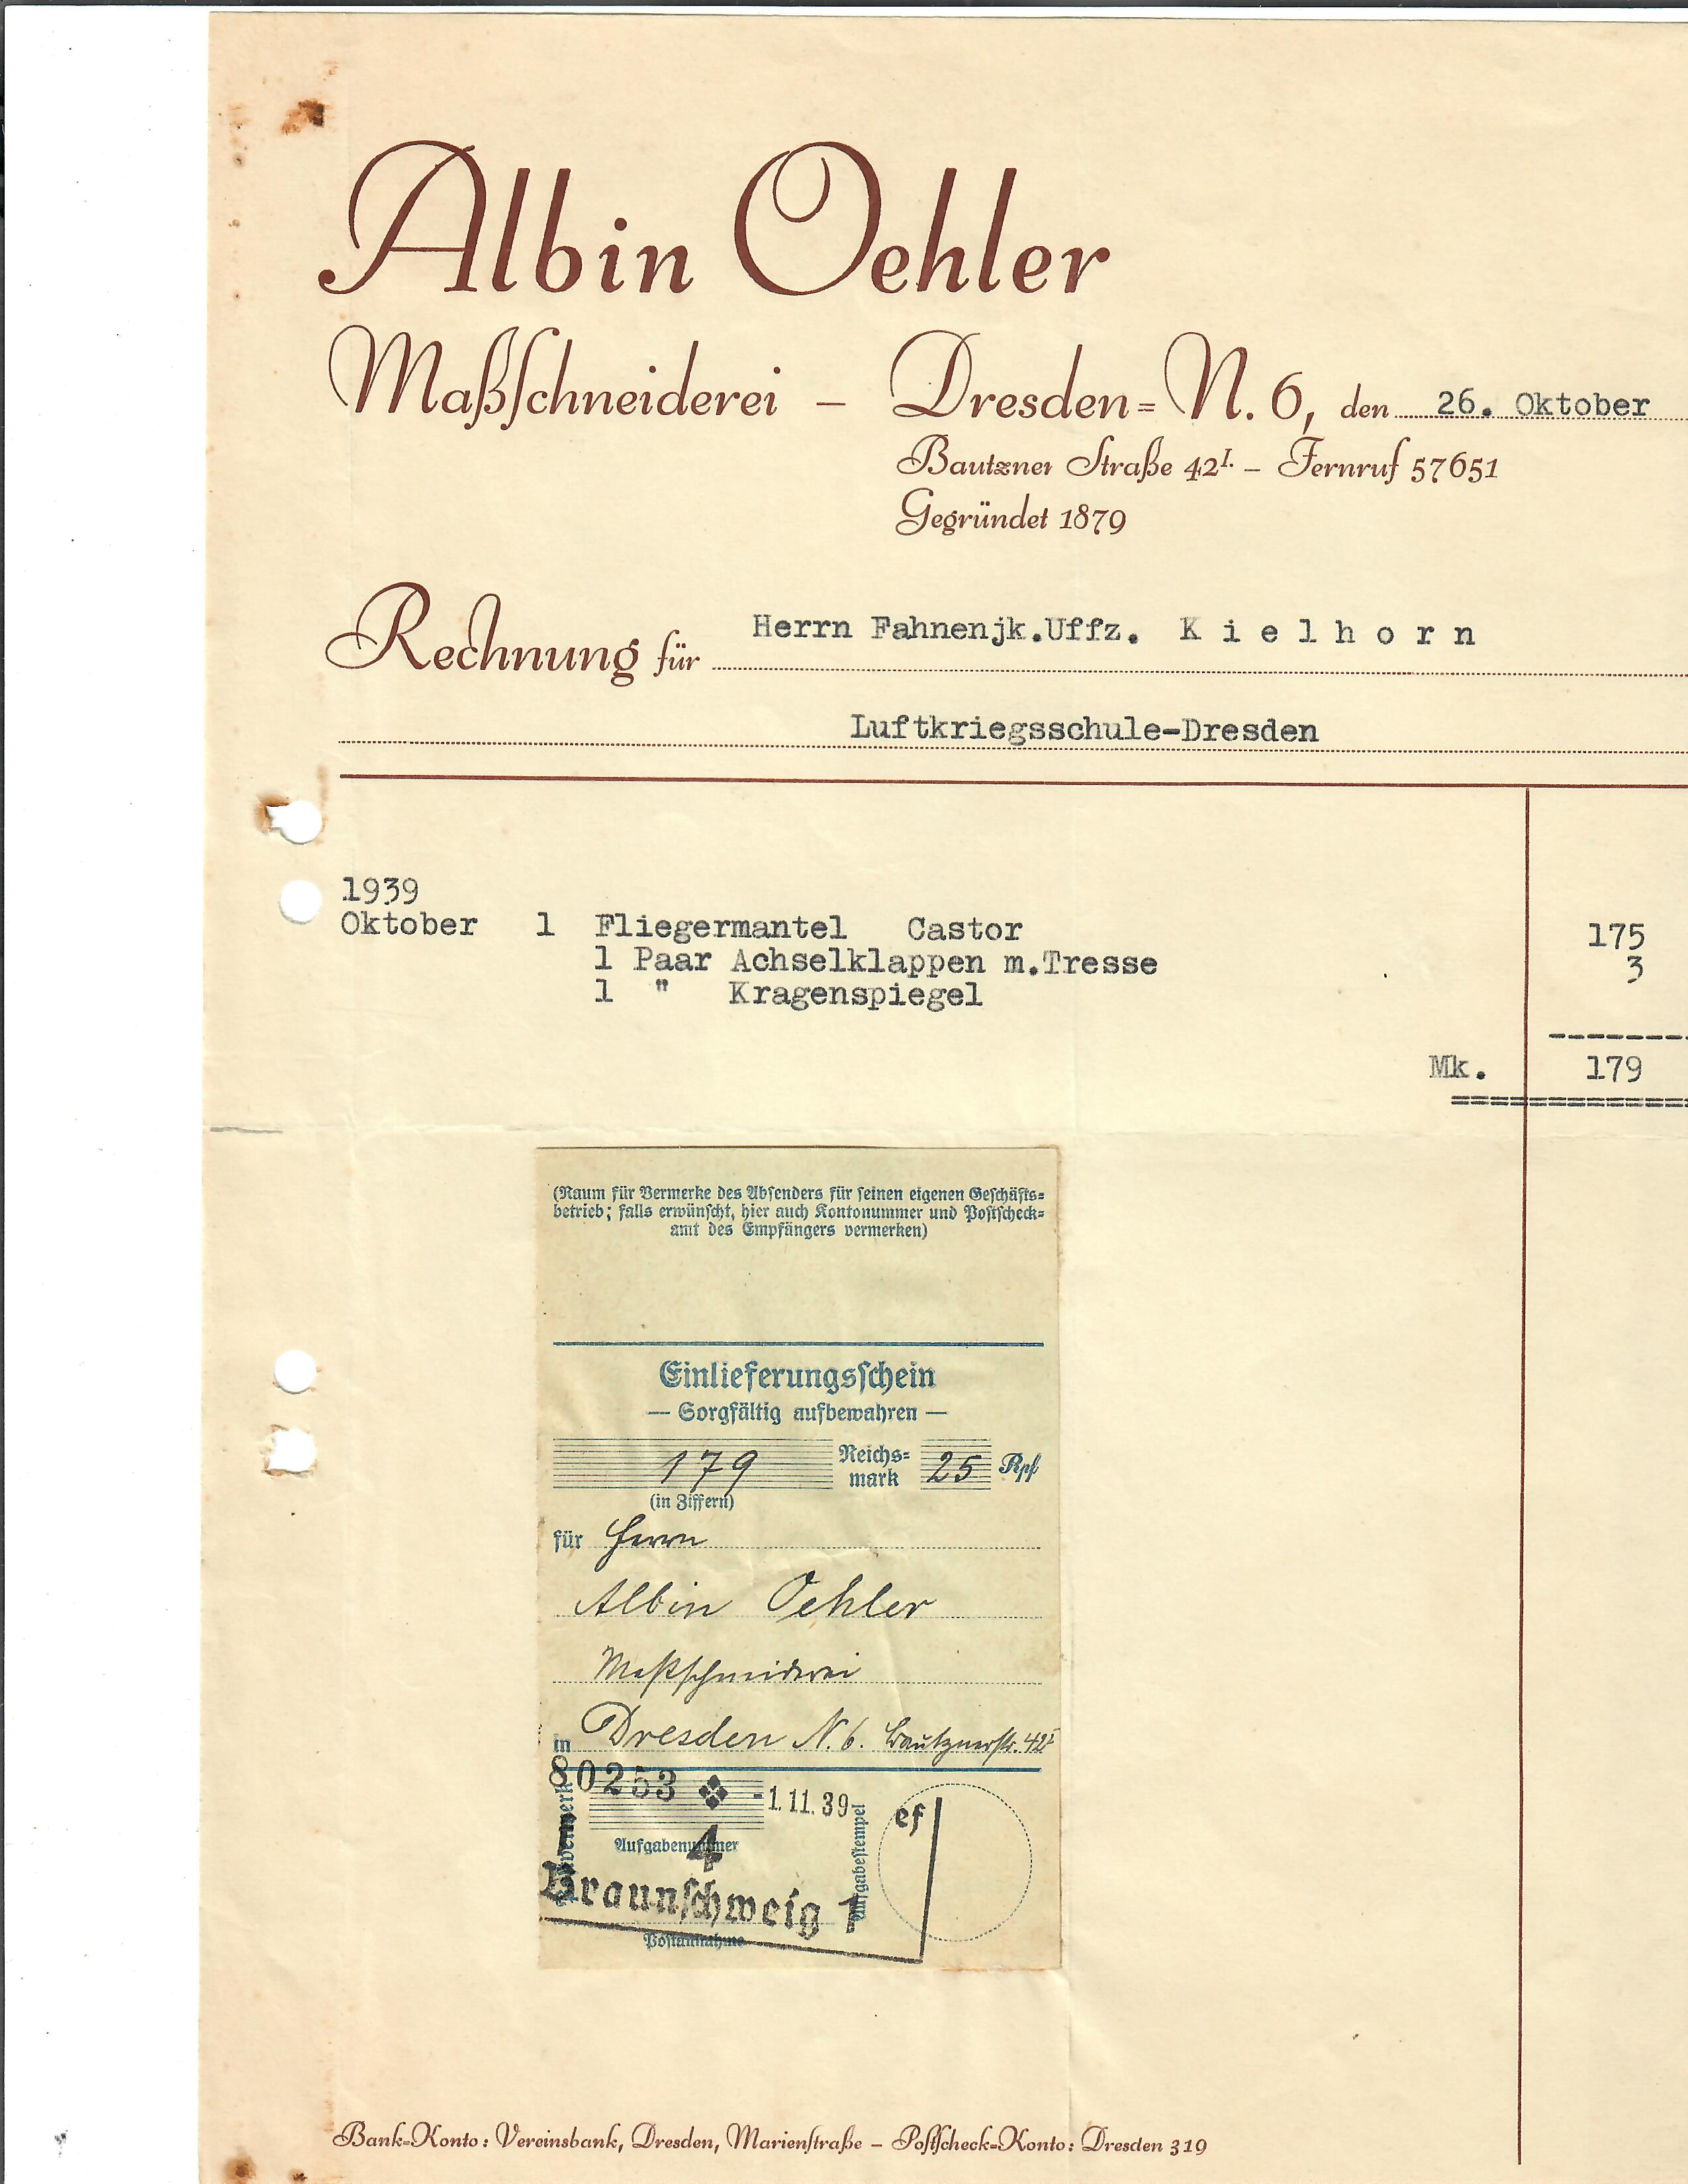 Albin Oehler
Maßschneiderei – Dresden=N. 6, den 26. Oktober
Bautzner Straße 42I. – Fernruf 57651
Gegründet 1879
Rechnung für Herrn Fahnenjk.Uffz. K i e l h o r n
Luftkriegsschule-Dresden
1939
Oktober 1 Fliegermantel Castor 175
1 Paar Achselklappen m.Tresse 3
1 " Kragenspiegel
Mk. 179
(Raum für Vermerke des Absenders für seinen eigenen Geschäfts=
betrieb; falls erwünscht, hier auch Kontonummer und Postscheck=
amt des Empfängers vermerken)
Einlieferungsschein
— Sorgfältig aufbewahren —
179 Reichs=
mark 25 Rpf
(in Ziffern)
für Herrn
Albin Oehler
Maßschneiderei
in Dresden N. 6. Bautznerstr. 42I
80253 -1.11.39-
Aufgabenummer
4
ef
Aufgabestempel
Braunschweig 1
Postannahme
Bank=Konto: Vereinsbank, Dresden, Marienstraße – Postscheck=Konto: Dresden 319